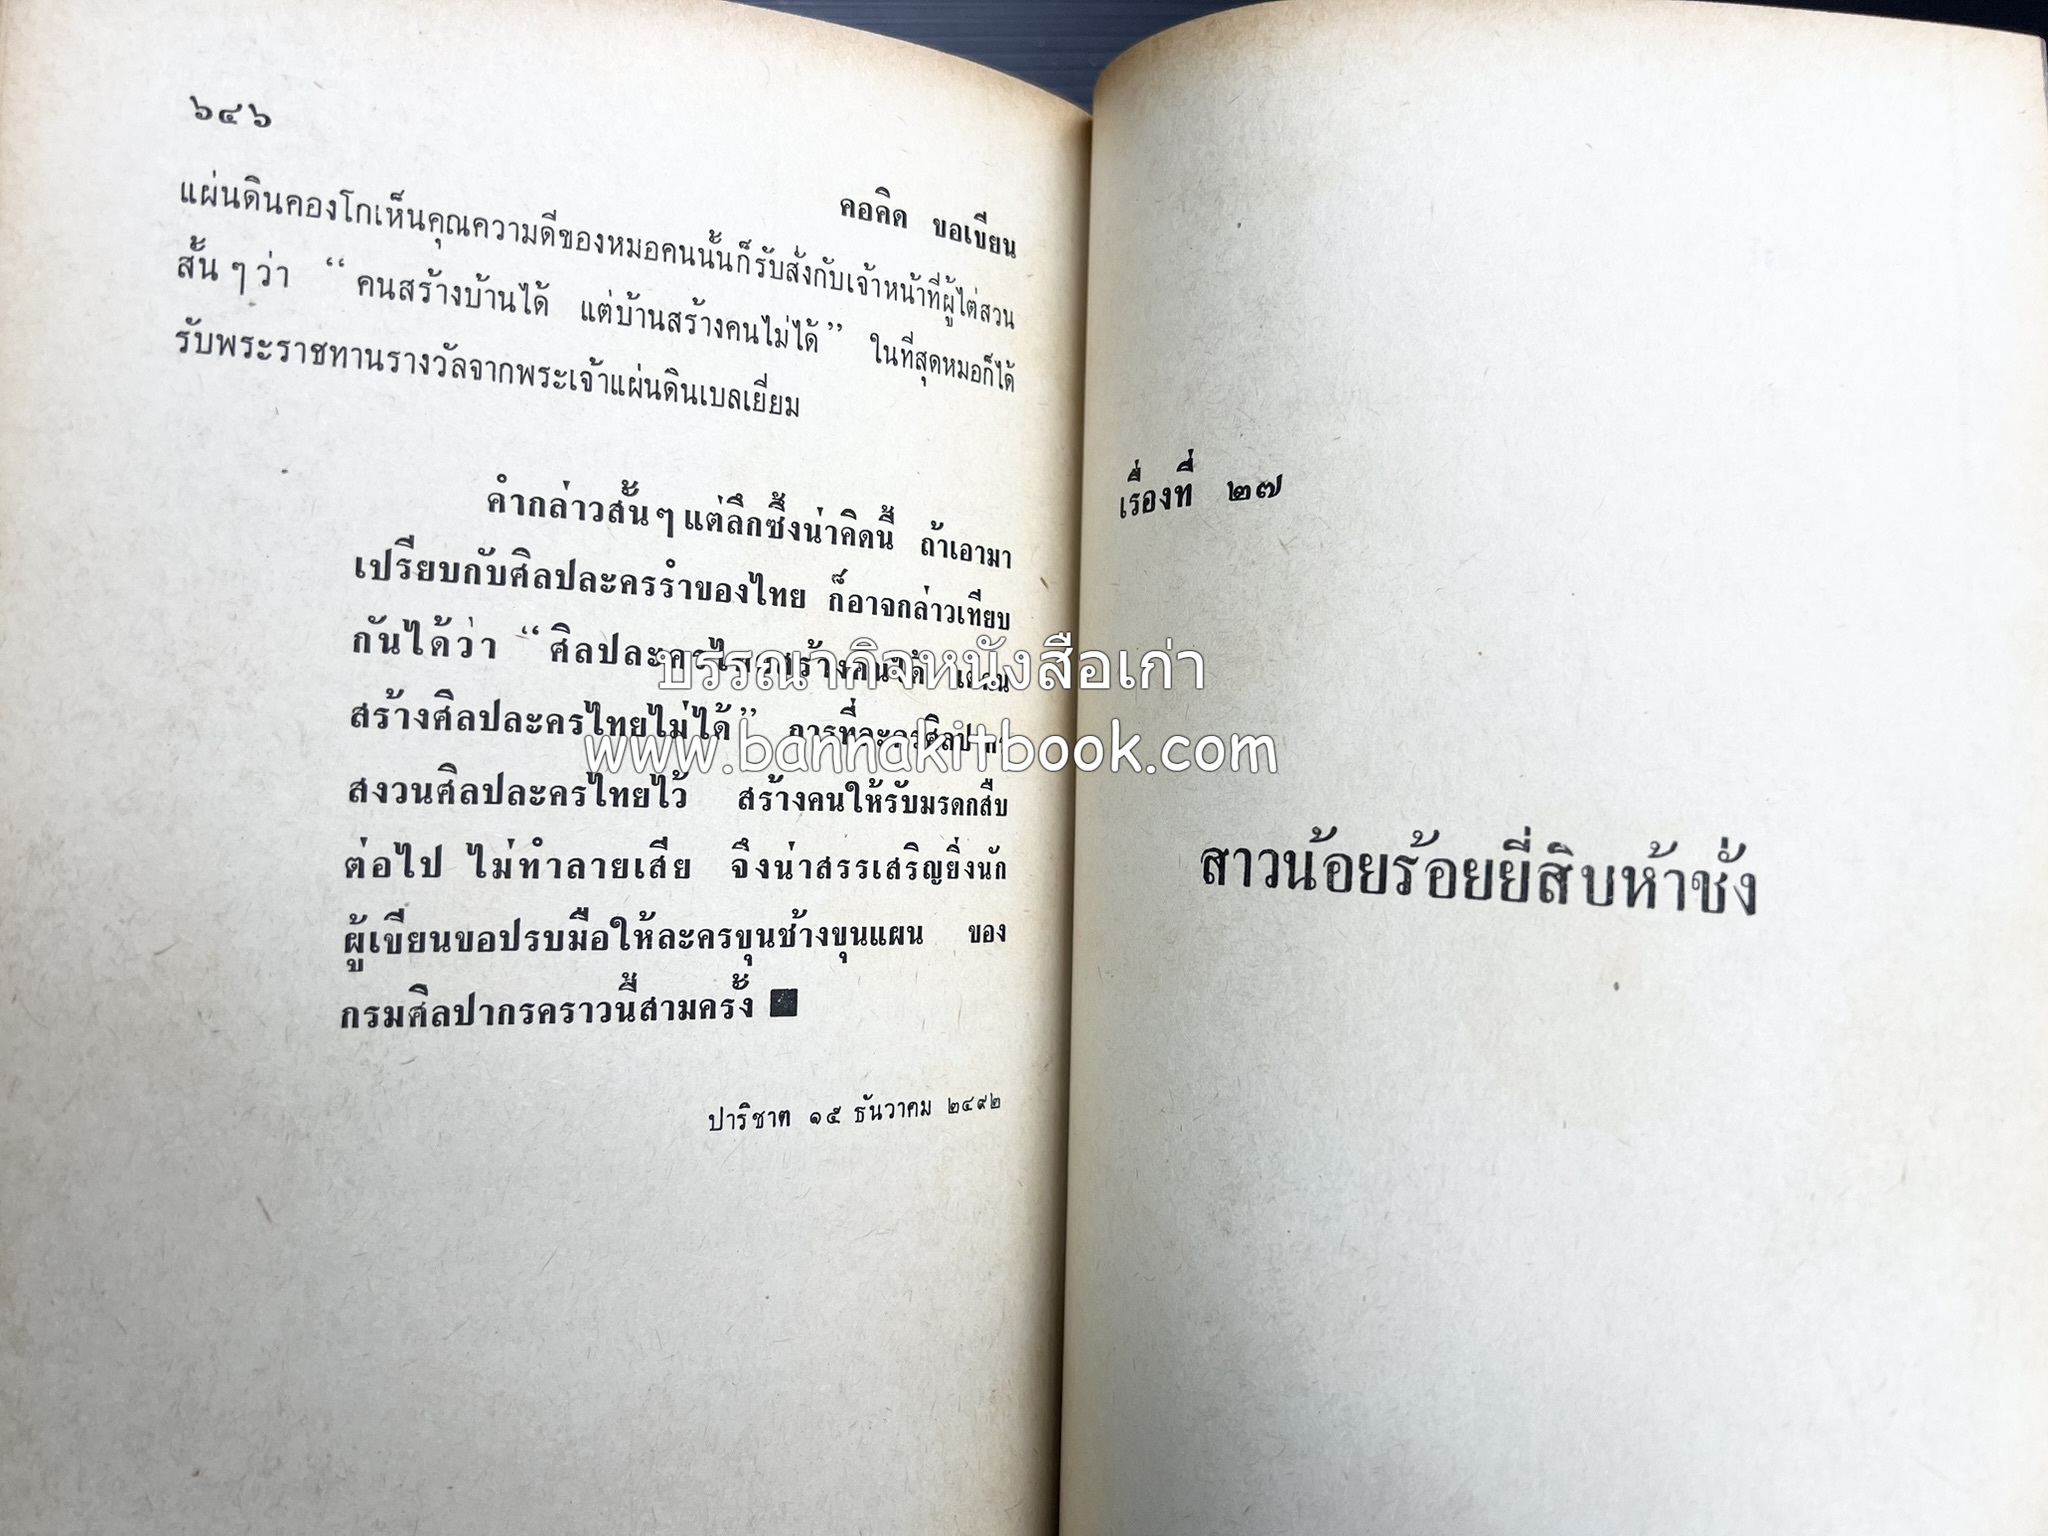 ๖๔๖
คอคิด ขอเขียน
แผ่นดินคองโกเห็นคุณความดีของหมอคนนั้นก็รับสั่งกับเจ้าหน้าที่ผู้ไต่สวน
สั้น ๆ ว่า “ คนสร้างบ้านได้ แต่บ้านสร้างคนไม่ได้ ” ในที่สุดหมอก็ได้
รับพระราชทานรางวัลจากพระเจ้าแผ่นดินเบลเยี่ยม
คำกล่าวสั้น ๆ แต่ลึกซึ้งน่าคิดนี้ ถ้าเอามา
เปรียบกับศิลปละครรำของไทย ก็อาจกล่าวเทียบ
กันได้ว่า “ ศิลปละครไทยสร้างคนได้
สร้างศิลปละครไทยไม่ได้ ” การที่ละครศิลปากร
สงวนศิลปละครไทยไว้ สร้างคนให้รับมรดกสืบ
ต่อไป ไม่ทำลายเสีย จึงน่าสรรเสริญยิ่งนัก
ผู้เขียนขอปรบมือให้ละครขุนช้างขุนแผน ของ
กรมศิลปากรคราวนี้สามครั้ง ■
ปาริชาต ๑๕ ธันวาคม ๒๔๙๒
เรื่องที่ ๒๗
สาวน้อยร้อยยี่สิบห้าชั่ง
บรรณากิจหนังสือเก่า
www.bannakitbook.com